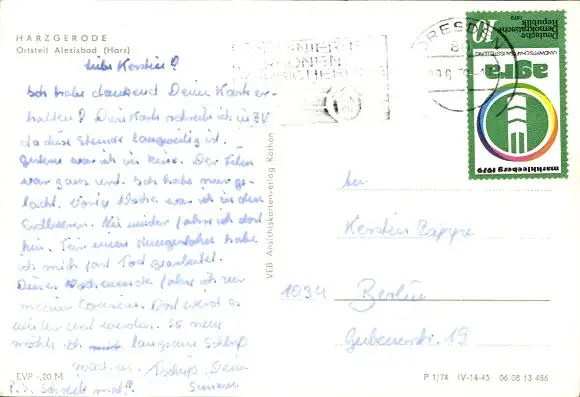 HARZGERODE
Ortsteil Alexisbad (Harz)
Liebe Kerstin!
Ich habe dankend Deine Karte er-
halten! Die Karte schreibe ich in
da diese Stunde langweilig ist.
Gestern war ich im Kino. Der Film
war ganz und. Ich habe nur ge-
lacht. Vorige Woche war ich in den
Erdbeeren. Nie wieder fahre ich dort
hin. Für einen habe
ich mich fast Tod gearbeitet.
Dieses Wochenende fahre ich zu
meiner Cousine. Dort werd es
wieder werden. So nun
möchte ich langsam Schluß
machen. Tschüß Deine
P.S. Schreib mal!!
EVP -,20 M
VEB Ansichtskartenverlag Köthen
DRESDEN
80
Deutsche
Demokratische
Republik
1979
10
agra
markkleeberg 1979
An
Kerstin Zappe
1034 Berlin
Gubenerstr. 19
P 1/74 IV-14-45 06 08 13 486